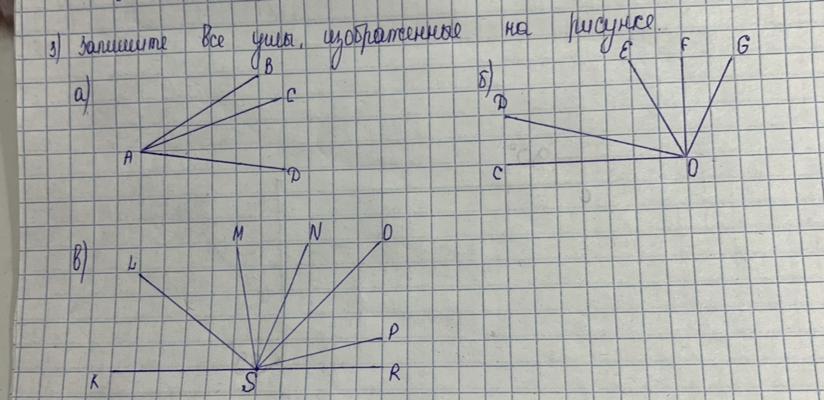 3) Запишите все углы, изображенные на рисунке.
а)
B
C
A
D
б)
E F G
D
C
O
в)
L
M N O
P
K S R